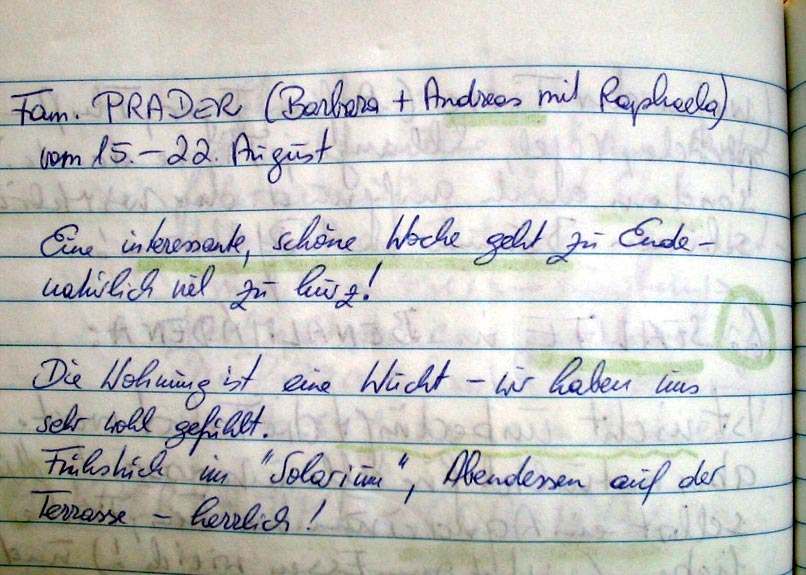 Fam. PRADER (Barbara + Andreas mit Raphaela)
vom 15. – 22. August
Eine interessante, schöne Woche geht zu Ende –
natürlich viel zu kurz!
Die Wohnung ist eine Wucht – wir haben uns
sehr wohl gefühlt.
Frühstück im "Solarium", Abendessen auf der
Terrasse – herrlich!